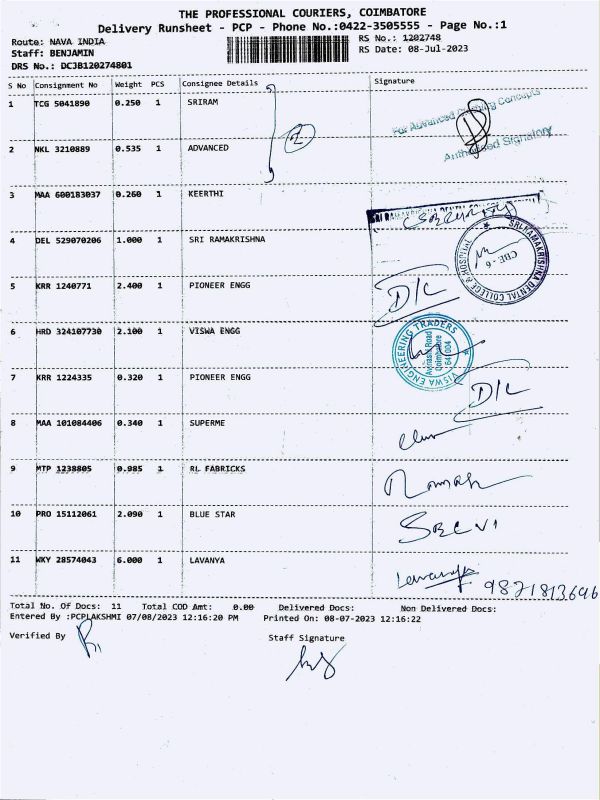 THE PROFESSIONAL COURIERS, COIMBATORE
Delivery Runsheet - PCP - Phone No.:0422-3505555 - Page No.:1
Route: NAVA INDIA
RS No.: 1202748
Staff: BENJAMIN
RS Date: 08-Jul-2023
DRS No.: DCJB120274801
S No Consignment No Weight PCS Consignee Details Signature
1 TCG 5041890 0.250 1 SRIRAM
For Advanced Concepts
2 NKL 3210889 0.535 1 ADVANCED
Authorised Signatory
3 MAA 600183037 0.260 1 KEERTHI
4 DEL 529070206 1.000 1 SRI RAMAKRISHNA
SRI RAMAKRISHNA DENTAL COLLEGE & HOSPITAL
CBE - 6
5 KRR 1240771 2.400 1 PIONEER ENGG D/C
6 HRD 324107730 2.100 1 VISWA ENGG
VISWA ENGINEERING TRADERS
Avinashi Road
Coimbatore
641 004
7 KRR 1224335 0.320 1 PIONEER ENGG D/C
8 MAA 101084406 0.340 1 SUPERME
9 MTP 1238805 0.985 1 RL FABRICKS
10 PRO 15112061 2.090 1 BLUE STAR
11 WKY 28574043 6.000 1 LAVANYA
9871813696
Total No. Of Docs: 11 Total COD Amt: 0.00 Delivered Docs: Non Delivered Docs:
Entered By :PCPLAKSHMI 07/08/2023 12:16:20 PM Printed On: 08-07-2023 12:16:22
Verified By
Staff Signature